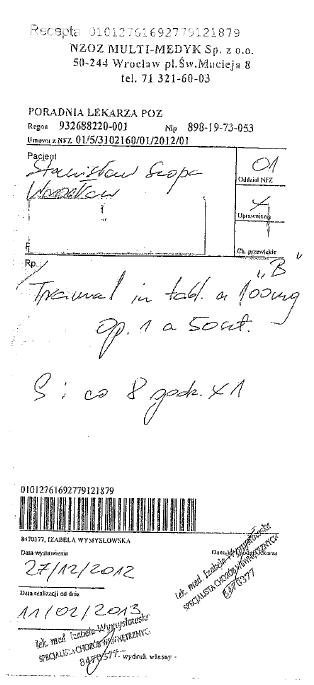 Recepta 01012761692779121879
NZOZ MULTI-MEDYK Sp. z o.o.
50-244 Wrocław pl.Św.Macieja 8
tel. 71 321-60-03
PORADNIA LEKARZA POZ
Regon 932688220-001 Nip 898-19-73-053
Umowa z NFZ 01/5/3102160/01/2012/01
Pacjent
Stanisław Szopa
Wrocław
01
Oddział NFZ
X
Uprawnienia
Ch. przewlekłe
Rp.
"B"
Tramal in tabl. a 100mg
op. 1 a 50szt.
S: co 8 godz. x 1
01012761692779121879
8470377, IZABELA WYMYSŁOWSKA
Data wystawienia
27/12/2012
lek. med. Izabela Wymysłowska
SPECJALISTA CHORÓB WEWNĘTRZNYCH
8470377
Data realizacji od dnia
11/02/2013
lek. med. Izabela Wymysłowska
SPECJALISTA CHORÓB WEWNĘTRZNYCH
8470377
- wydruk własny -